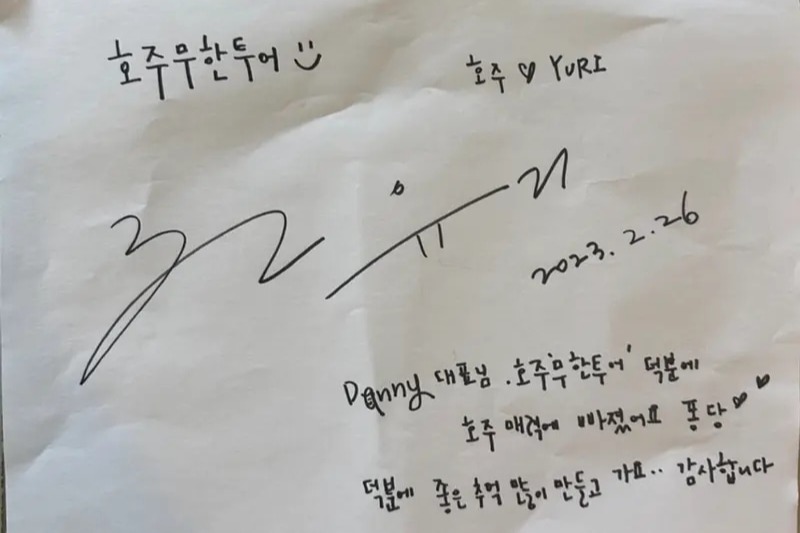 호주무한투어
호주 ♡ YURI
권유리
2023.2.26
Danny 대표님. 호주'무한투어' 덕분에
호주 매력에 빠졌어요 퐁당♡♡
덕분에 좋은 추억 많이 만들고 가요.. 감사합니다